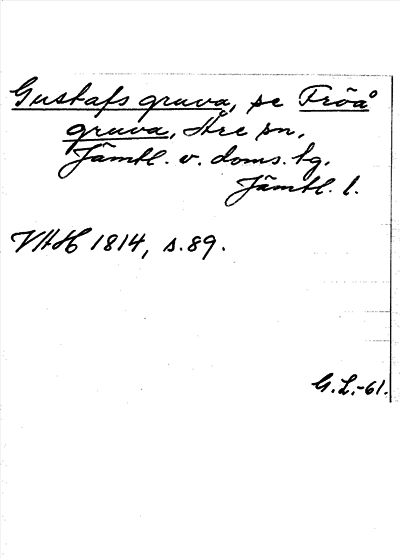 Gustafs gruva, se Fröå
gruva, Åre sn,
Jämtl. v. doms. tg.
Jämtl. l.
VAH 1814, s. 89.
G. L. -61.